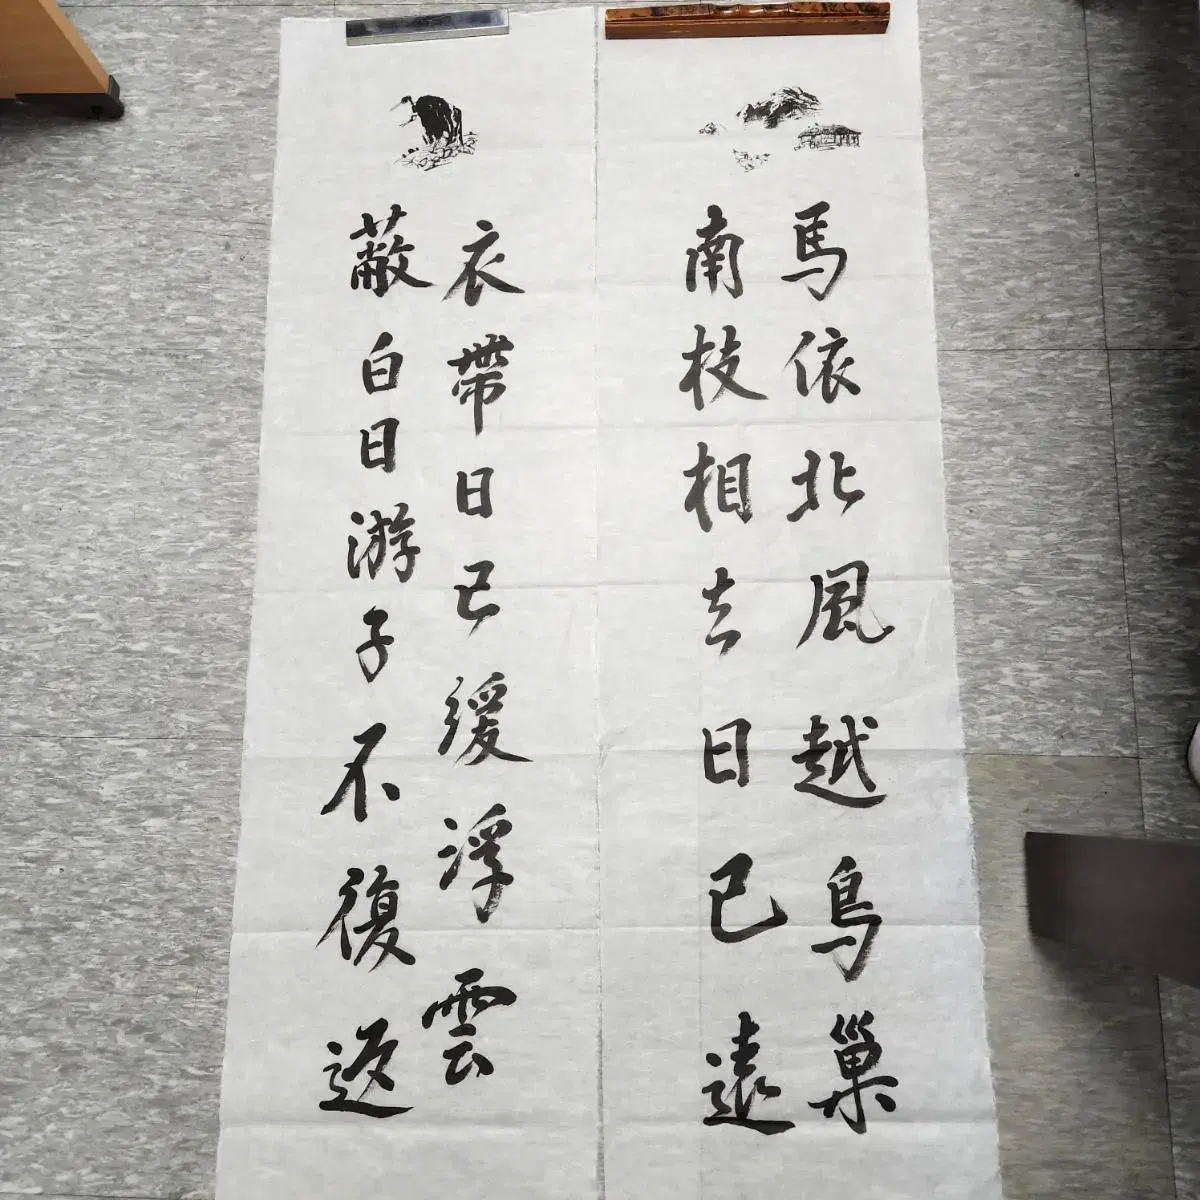 馬依北風越鳥巢
南枝相去日已遠
衣帶日已緩浮雲
蔽白日游子不復返